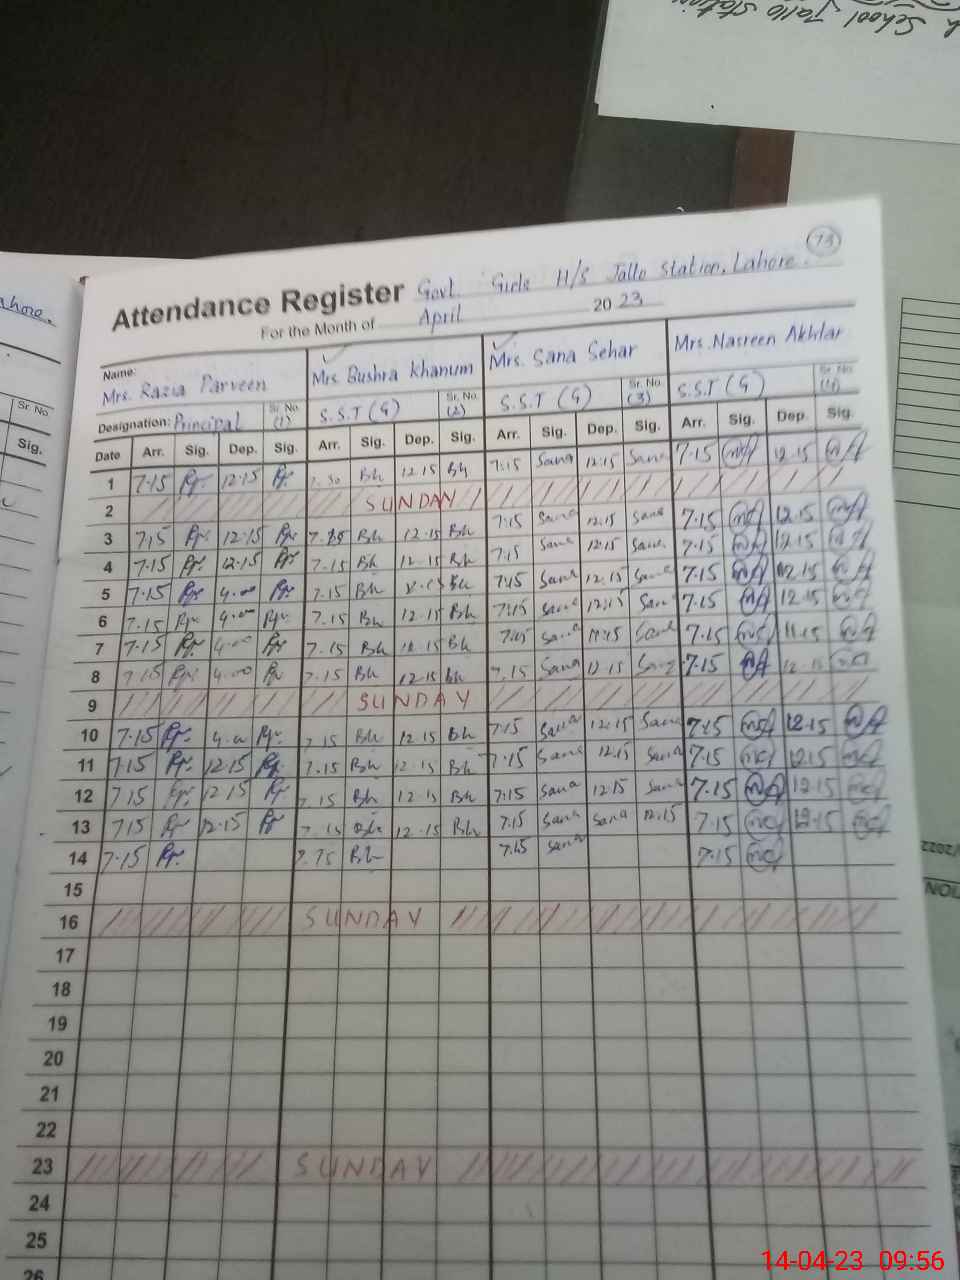 School Jallo Stati
ahore.
73
Attendance Register Govt. Girls H/S Jallo Station, Lahore.
For the Month of April 2023
Name:
Mrs. Razia Parveen Mrs. Bushra Khanum Mrs. Sana Sehar Mrs. Nasreen Akhtar
Designation: Principal Sr. No. (1) S.S.T (G) Sr. No. (2) S.S.T (G) Sr. No. (3) S.S.T (G) Sr. No. (4)
Sr. No
Sig.
Date Arr. Sig. Dep. Sig. Arr. Sig. Dep. Sig. Arr. Sig. Dep. Sig. Arr. Sig. Dep. Sig.
1 7.15 Pr. 12.15 Pr. Bh 12.15 Bh 7:15 Sana 12:15 Sana 7.15 12.15
2 SUNDAY
3 7,15 Pr. 12.15 Pr. Bh 12.15 Bh 7:15 Sana 12.15 Sana 7.15 12.15
4 7.15 Pr. 12.15 Pr. 7.15 Bh 12.15 Bh 7:15 Sana 12:15 Sana 7.15 12.15
5 7.15 Pr. 4.00 Pr. 7.15 Bh Bh 7:15 Sana 12.15 Sana 7.15 12.15
6 7.15 Pr. 4.00 Pr. 7.15 Bh 12.15 Bh 7:15 Sana 12:15 Sana 7.15 12.15
7 7.15 Pr. 4.00 Pr. 7.15 Bh Bh 7:15 Sana 11:15 Sana 7.15 11.15
8 7.15 Pr. 4.00 Pr. 7.15 Bh 12.15 Bh 7.15 Sana 12.15 Sana 7.15 12.15
9 SUNDAY
10 7.15 Pr. Pr. 7.15 Bh 12.15 Bh 7:15 Sana 12:15 Sana 7.15 12.15
11 7.15 Pr. 12.15 Pr. 7.15 Bh 12.15 Bh 7:15 Sana 12.15 Sana 7.15 12.15
12 7.15 Pr. 12.15 Pr. 7.15 Bh 12.15 Bh 7:15 Sana 12:15 Sana 7.15 12.15
13 7.15 Pr. 12.15 Pr. 7.15 12.15 Bh 7.15 Sana Sana 12.15 7.15 12.15
14 7.15 Pr. Bh 7.15 Sana 7.15
15
16 SUNDAY
17
18
19
20
21
22
23 SUNDAY
24
25
26
/2022
ION
14-04-23 09:56